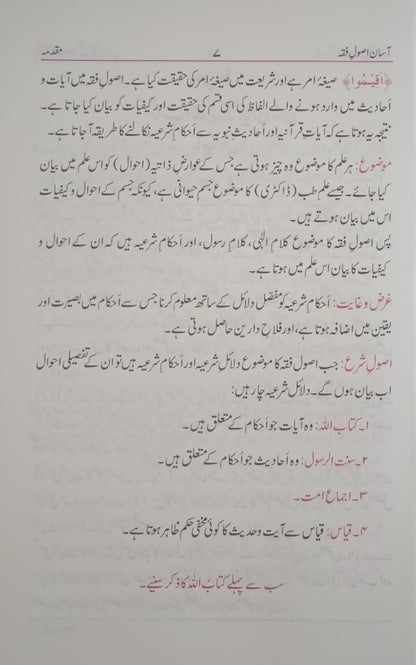 آسان اصولِ فقہ ۷ مقدمہ
﴿اَقِیْمُوْا﴾ صیغۂ امر ہے اور شریعت میں صیغۂ امر کی حقیقت کیا ہے۔ اصولِ فقہ میں آیات و
أحادیث میں وارد ہونے والے الفاظ کی اسی قسم کی حقیقت اور کیفیات کو بیان کیا جاتا ہے۔
نتیجہ یہ ہوتا ہے کہ آیات قرآنیہ اور أحادیثِ نبویہ سے أحکامِ شرعیہ نکالنے کا طریقہ آ جاتا ہے۔
موضوع: ہر علم کا موضوع وہ چیز ہوتی ہے جس کے عوارضِ ذاتیہ (احوال) کو اس علم میں بیان
کیا جائے۔ جیسے علم طب (ڈاکٹری) کا موضوع جسمِ حیوانی ہے، کیونکہ جسم کے احوال و کیفیات
اس میں بیان ہوتے ہیں۔
پس اصولِ فقہ کا موضوع کلامِ الٰہی، کلامِ رسول، اور أحکامِ شرعیہ ہیں کہ ان کے احوال و
کیفیات کا بیان اس علم میں ہوتا ہے۔
غرض و غایت: أحکامِ شرعیہ کو مفصّل دلائل کے ساتھ معلوم کرنا جس سے أحکام میں بصیرت اور
یقین میں اضافہ ہوتا ہے، اور فلاحِ دارین حاصل ہوتی ہے۔
اصولِ شرع: جب اصولِ فقہ کا موضوع دلائلِ شرعیہ اور أحکامِ شرعیہ ہیں تو ان کے تفصیلی احوال
اب بیان ہوں گے۔ دلائلِ شرعیہ چار ہیں:
۱۔ کتابُ اللہ: وہ آیات جو أحکام کے متعلق ہیں۔
۲۔ سنت الرسول: وہ أحادیث جو أحکام کے متعلق ہیں۔
۳۔ اجماع امت۔
۴۔ قیاس: قیاس سے آیت و حدیث کا کوئی مخفی حکم ظاہر ہوتا ہے۔
سب سے پہلے کتابُ اللہ کا ذکر سنیے۔